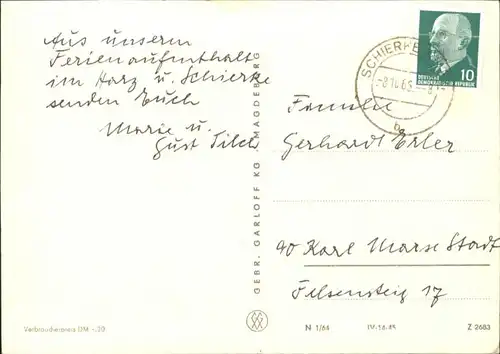 Aus unserm
Ferienaufenthalt
im Harz u. Schierke
senden Euch
Marie u.
Gust
SCHIERKE
-8.10.65
b
10
DEUTSCHE
DEMOKRATISCHE REPUBLIK
Familie
Gerhardt Erler
90 Karl Marx Stadt
Filsensteig 17
GEBR. GARLOFF KG MAGDEBURG
Verbraucherpreis DM -,20
N 1/64
IV-14-45
Z 2683